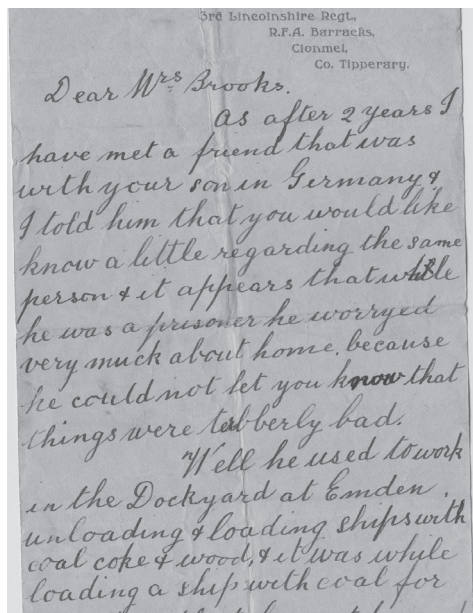 3rd Lincolnshire Regt.,
R.F.A. Barracks,
Clonmel,
Co. Tipperary.
Dear Mrs Brooks.
As after 2 years I
have met a friend that was
with your son in Germany &
I told him that you would like
know a little regarding the same
person & it appears that while
he was a prisoner he worryed
very much about home, because
he could not let you know that
things were terbberly bad.
Well he used to work
in the Dockyard at Emden,
unloading & loading ships with
coal coke & wood, & it was while
loading a ship with coal for